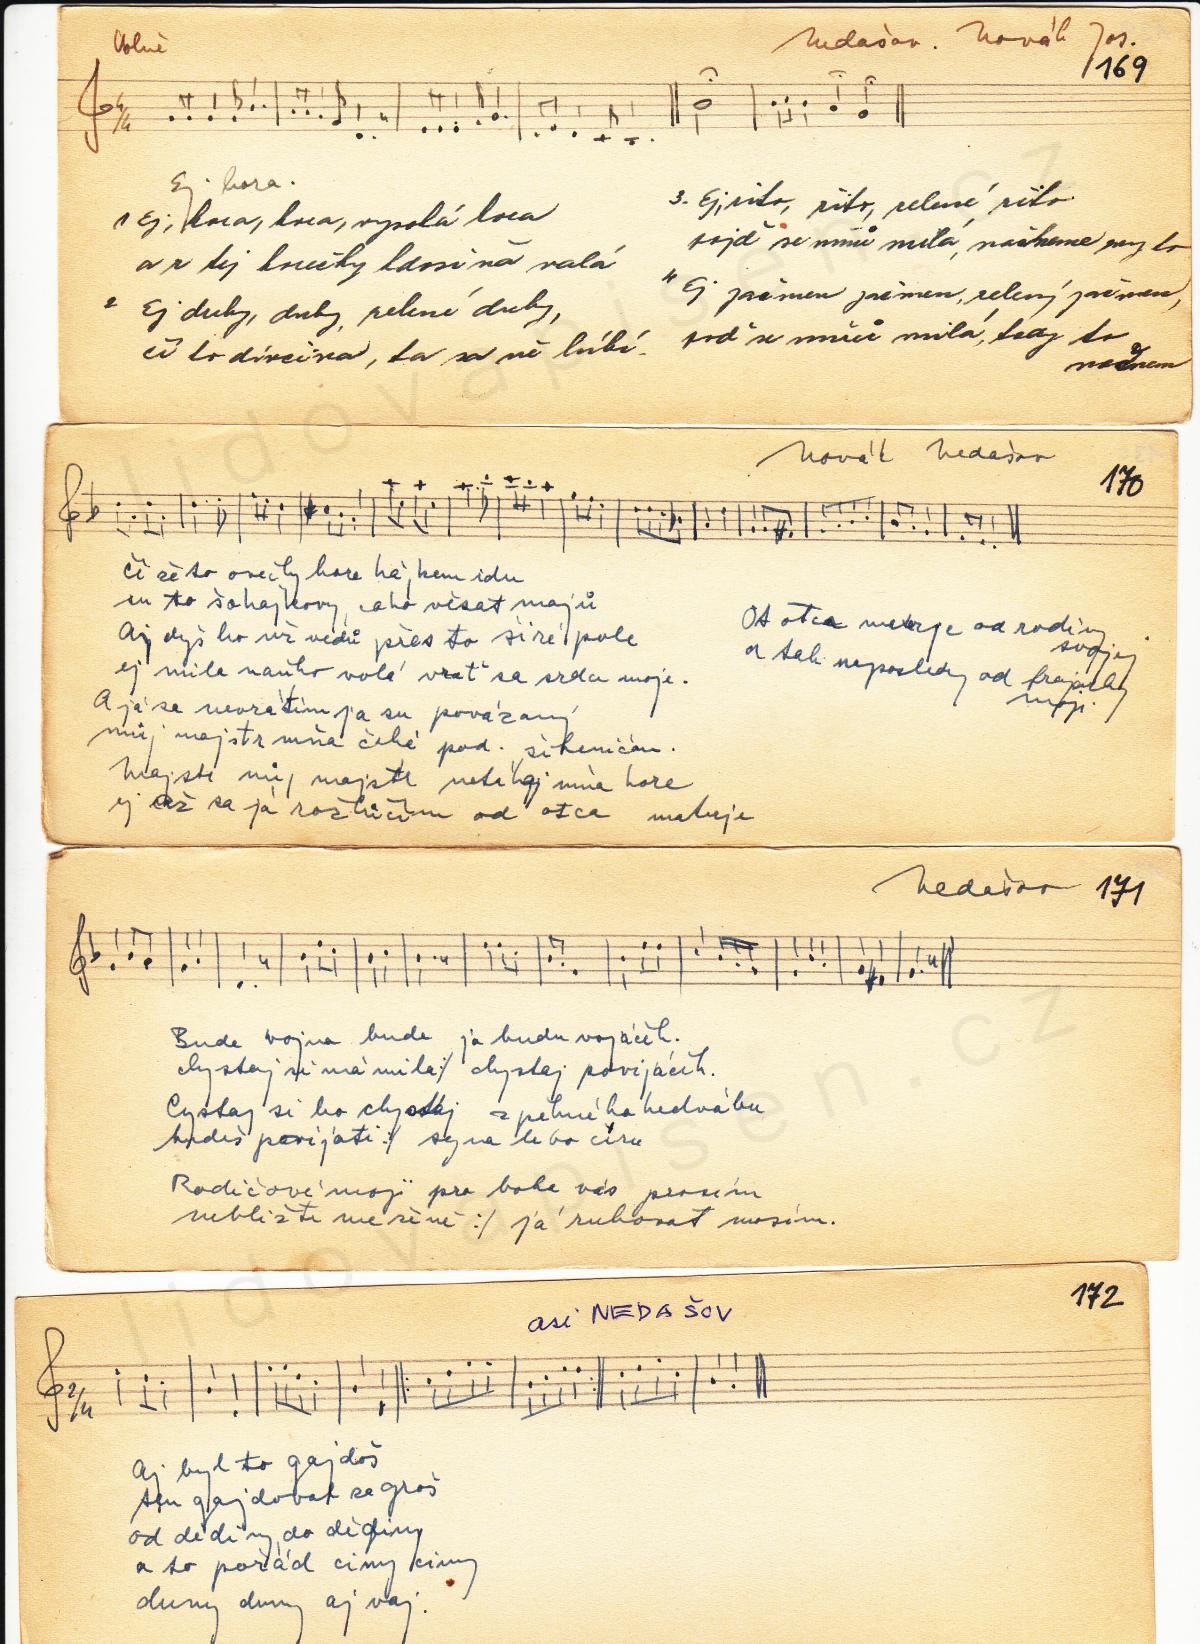 Volně
Nedašov. Novák Jos.
169
4/4
Ej hora.
1 Ej, hora, hora, vysoká hora
a z tej horečky kdosi ňa volá
2 Ej duby, duby, zelené duby,
čí to dívčina, ta sa ně lúbí.
3. Ej, žito, žito, zelené žito
pojď se mnú milá, nažneme my to
4 Ej jačmen jačmen, zelený jačmen,
pod se mnú milá, tedy to
nažnem
Novák Nedašov
170
Čí sé to ovečky hore hájkem idu
su to šohajkovy, jeho věšat majú
Aj dyž ho už vedú přes to šíré pole
ej milá naňho volá vrať sa srdce moje.
A já sa nevrátím ja su povázaný
můj majstr mňa čeká pod šibenicou.
Majstr můj majstr netáhaj mňa hore
ej až sa já rozlúčím od otca mateje
Ot otca mateje od rodiny
svojej
a tak naposledy od frajerky
mojí.
Nedašov 171
Bude vojna bude ja budu vojáček.
chystaj si má milá :/ chystaj povijáček.
Cystaj si ho chystaj z pěkného hedvábu
budeš povíjati :/ syna lebo céru
Rodičové moji pro boha vás prosím
nebližte me ženě :/ já rukovat mosím.
172
asi NEDAŠOV
2/4
Aj byl to gajdoš
ten gajdovat za groš
od dědiny do dědiny
a to pořád cimy cimy
dumy dumy aj vaj.
lidovapisen.cz
lidovapisen.cz